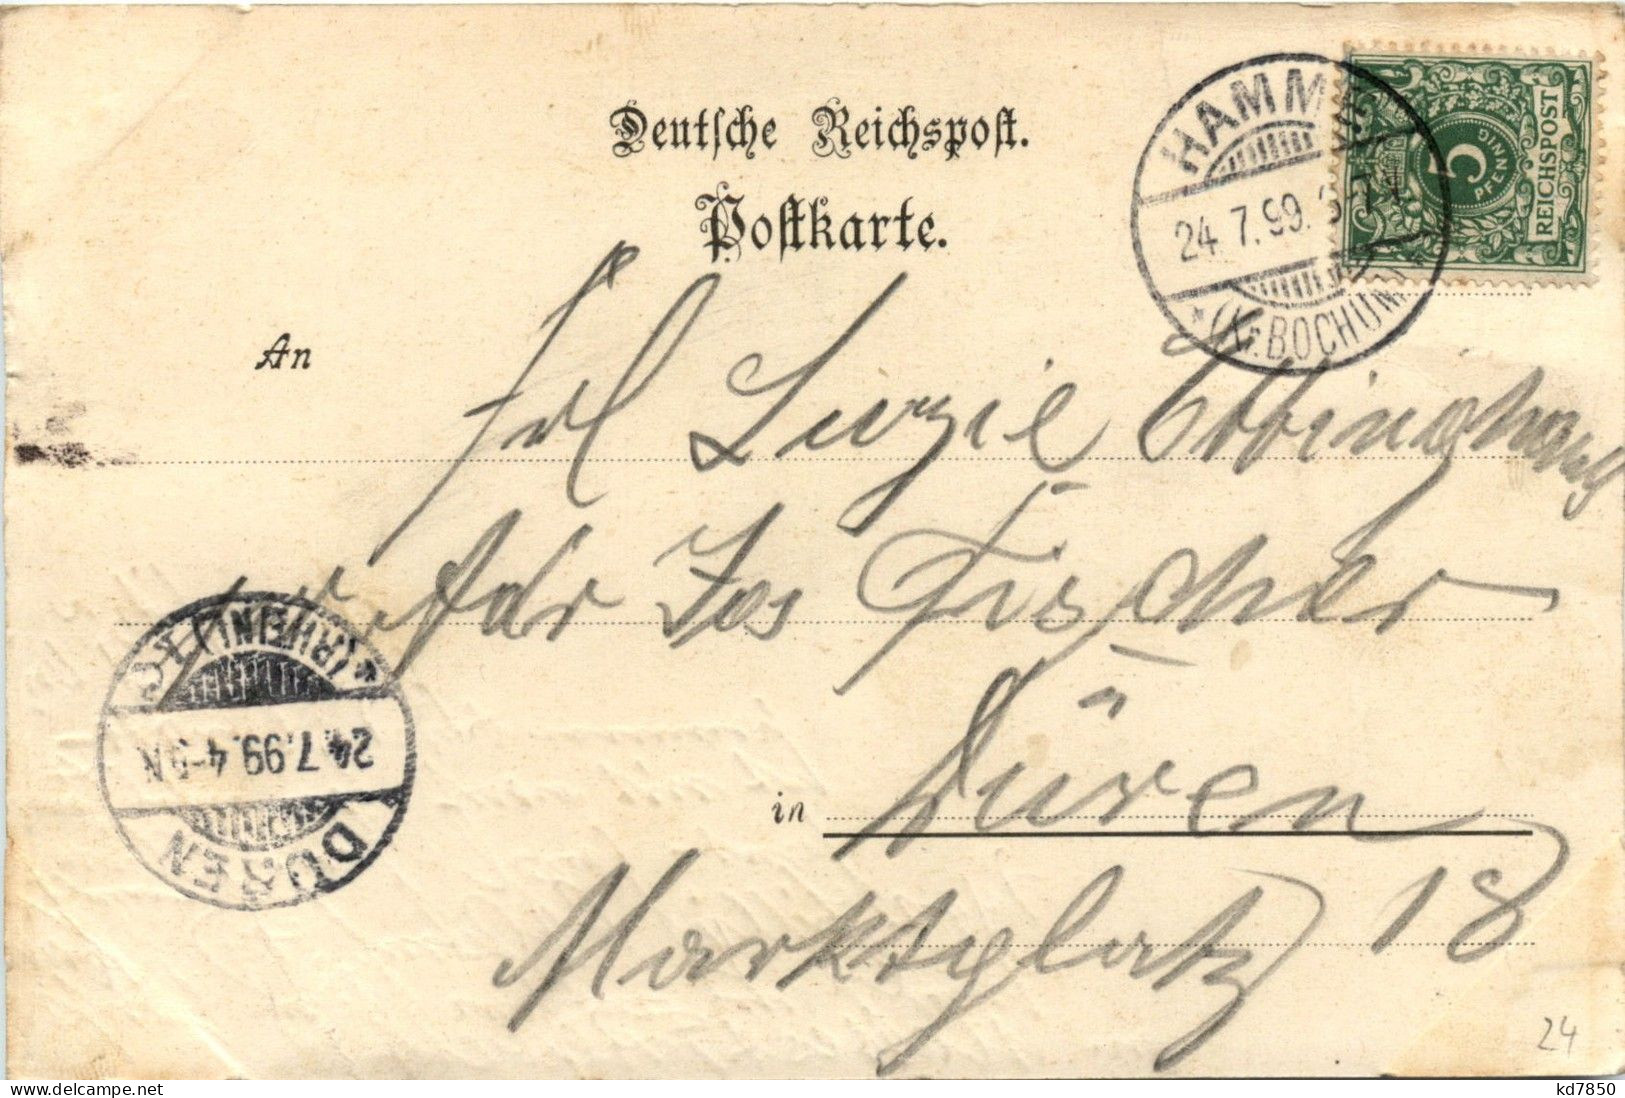 Deutsche Reichspost.
Postkarte.
HAMME
24.7.99.
* (Kr. BOCHUM)
5
PFENNIG
REICHSPOST
An
Frl Luzie Ebbinghaus
Adr Jos Fischer
in Düren
Marktplatz 18
DÜREN
24.7.99.4-5N
*(RHEINL)
24
www.delcampe.net
kd7850